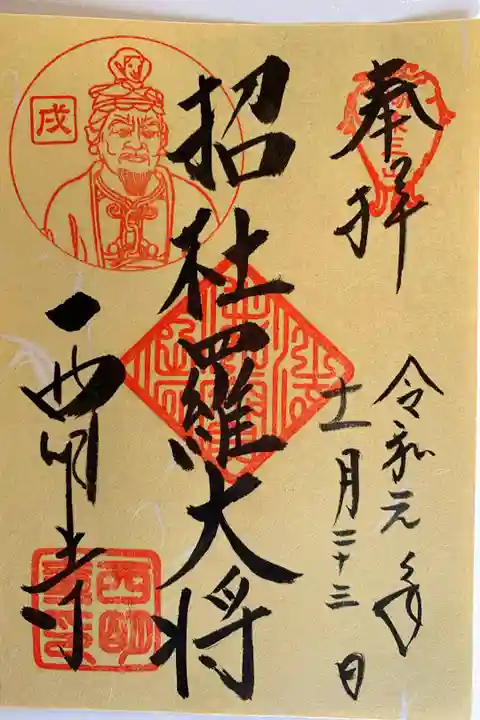 奉拝
令和元年
十一月二十三日
招杜羅大将
戌
西明寺
西明